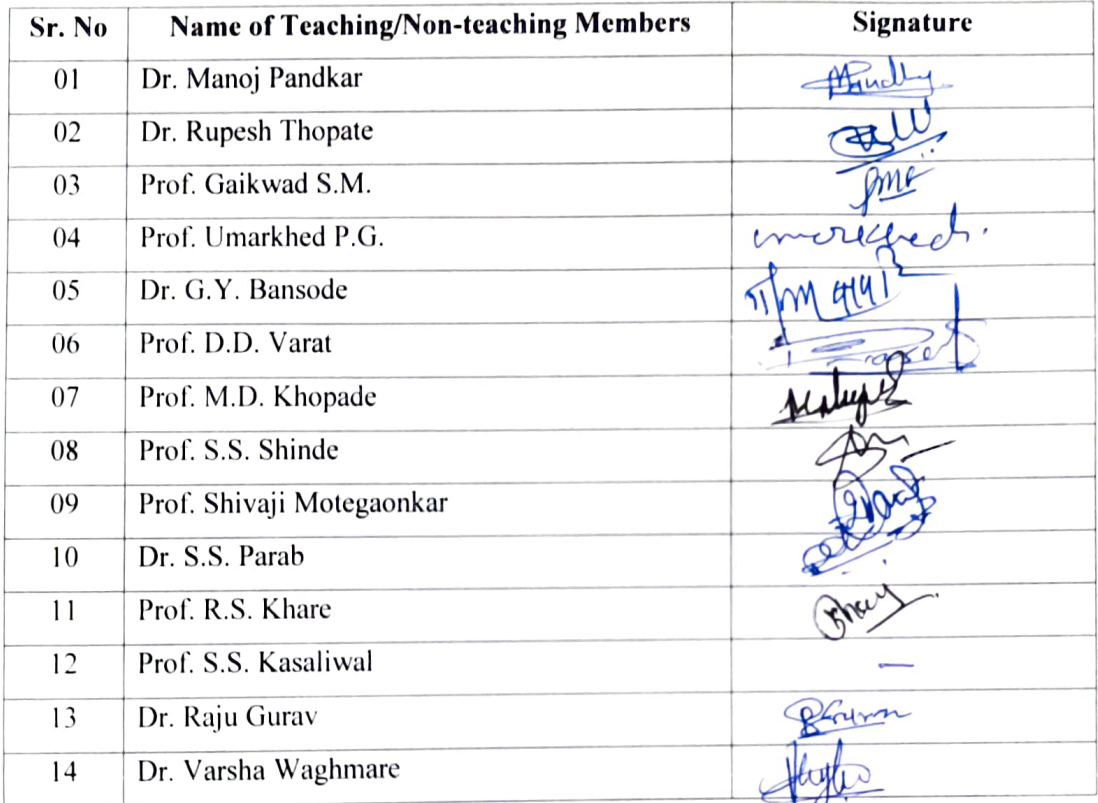 Sr. No Name of Teaching/Non-teaching Members Signature
01 Dr. Manoj Pandkar
02 Dr. Rupesh Thopate
03 Prof. Gaikwad S.M.
04 Prof. Umarkhed P.G.
05 Dr. G.Y. Bansode
06 Prof. D.D. Varat
07 Prof. M.D. Khopade
08 Prof. S.S. Shinde
09 Prof. Shivaji Motegaonkar
10 Dr. S.S. Parab
11 Prof. R.S. Khare
12 Prof. S.S. Kasaliwal —
13 Dr. Raju Gurav
14 Dr. Varsha Waghmare